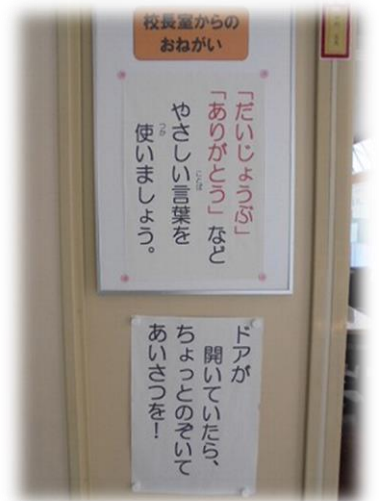 校長室からの
おねがい
「だいじょうぶ」
「ありがとう」など
やさしい言葉を
使いましょう。
ドアが
開いていたら、
ちょっとのぞいて
あいさつを!